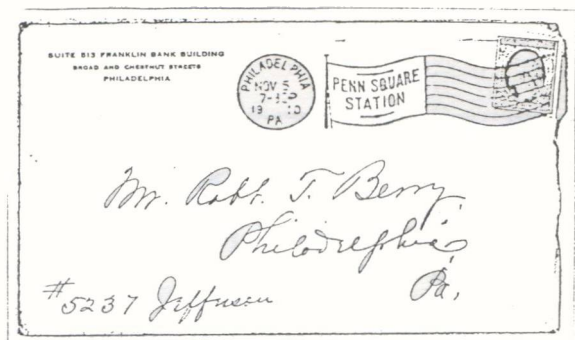 SUITE 813 FRANKLIN BANK BUILDING
BROAD AND CHESTNUT STREETS
PHILADELPHIA
PHILADELPHIA
NOV 5
19 10
PA
PENN SQUARE
STATION
Mr. Robt. T. Berry,
Philadelphia
Pa,
#5237 Jefferson